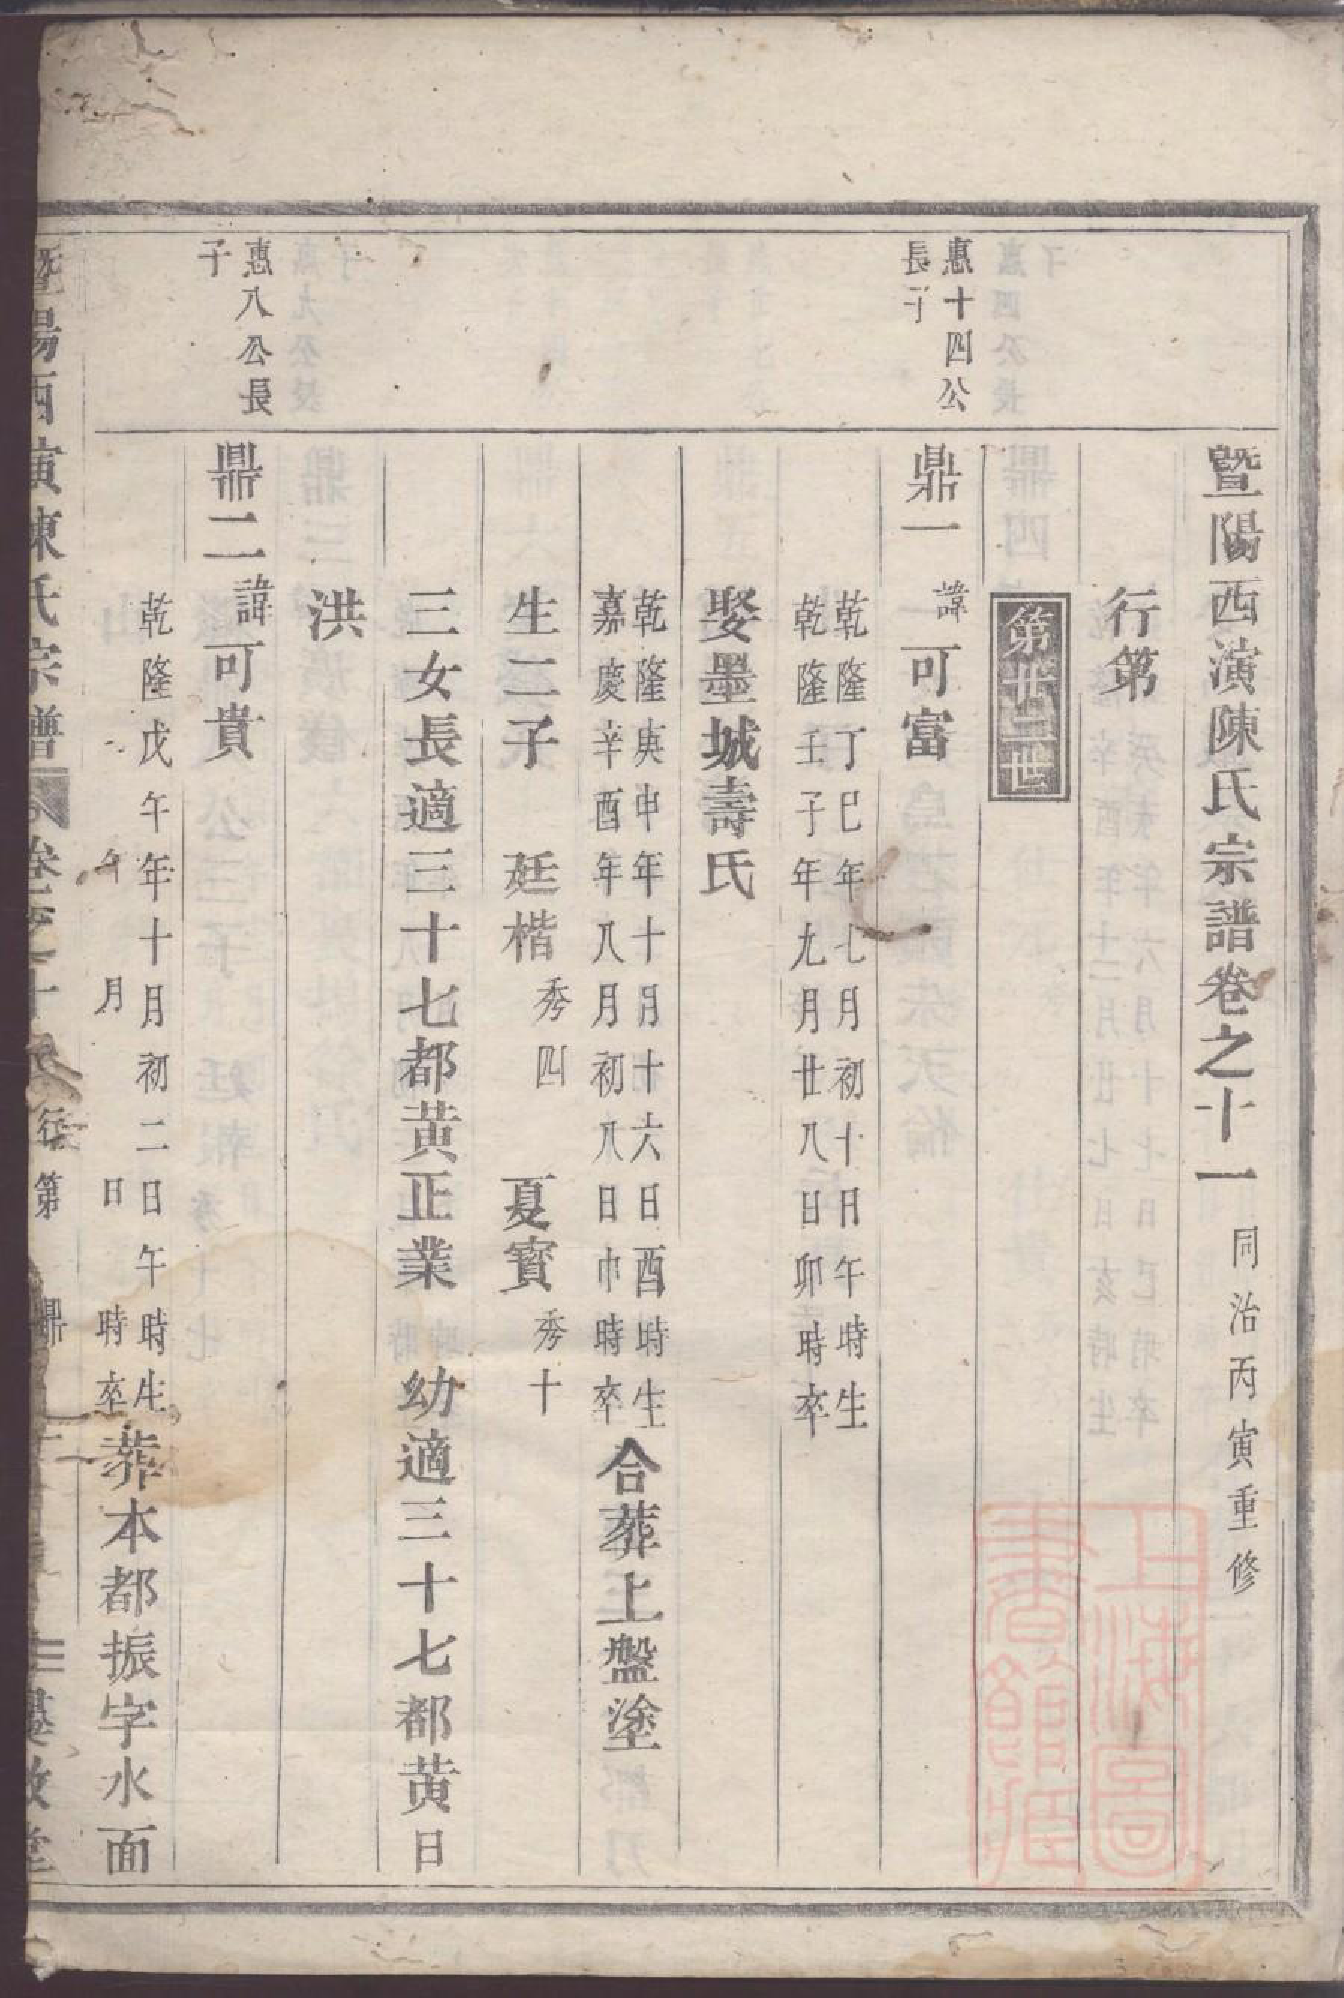 暨陽西演陳氏宗譜卷之十一 同治丙寅重修
行第
第廿二世
惠十四公
長子
鼎一 諱可富
乾隆丁巳年七月初十日午時生
乾隆壬子年九月廿八日卯時卒
娶墨城壽氏
乾隆庚申年十月十六日酉時生
嘉慶辛酉年八月初八日巾時卒
合葬上盤塗
生二子 廷楷 秀四 夏寳 秀十
三女長適三十七都黄正業 幼適三十七都黄日
洪
惠八公長
子
鼎二 諱可貴
乾隆戊午年十月初二日午時生
年 月 日 時卒
葬本都振字水面
暨陽西演陳氏宗譜 卷之十 行第 鼎
上海圖書館藏